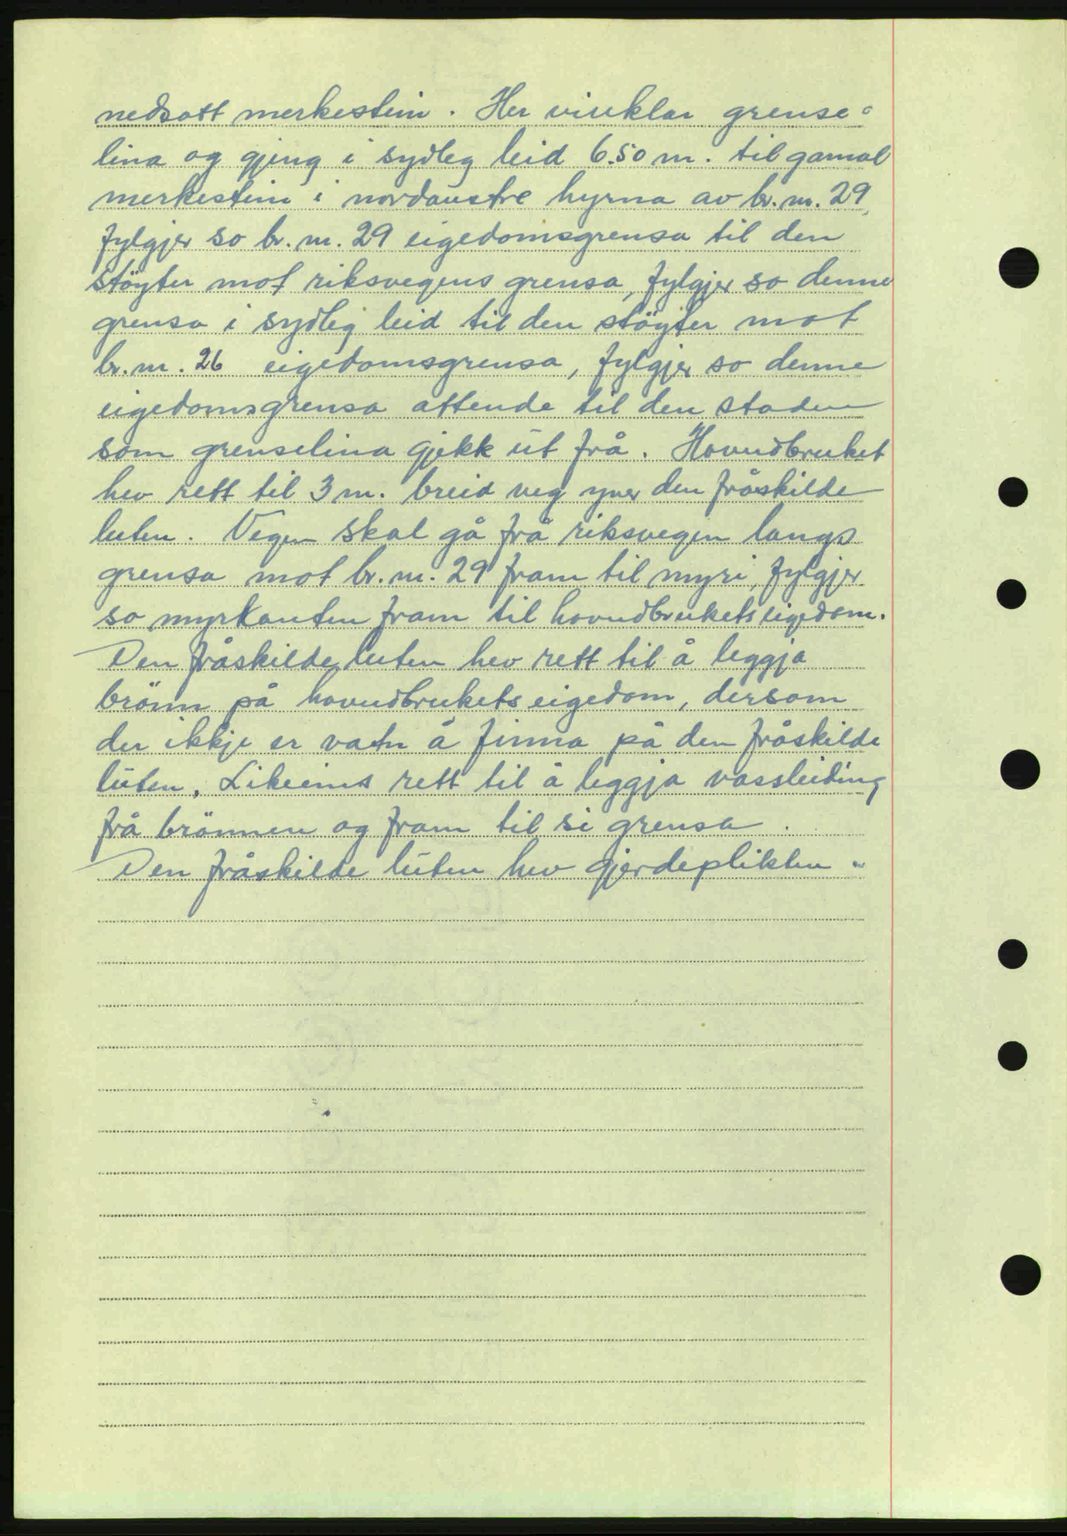 nedsatt merkestein. Her vinklar grense-
lina og gjeng i sydleg leid 6.50 m. til gamal
merkestein i nordaustre hyrna av br. nr. 29,
fylgjer so br. nr. 29 eigedomsgrensa til den
støyter mot riksvegens grensa, fylgjer so denne
grensa i sydleg leid til den støyter mot
br. nr. 26 eigedomsgrensa, fylgjer so denne
eigedomsgrensa attende til den staden
som grenselina gjekk ut frå. Hovudbruket
hev rett til 3 m. breid veg yver den fråskilde
luten. Vegen skal gå frå riksvegen langs
grensa mot br. nr. 29 fram til myri, fylgjer
so myrkanten fram til hovudbrukets eigedom.
Den fråskilde luten hev rett til å leggja
brönn på hovudbrukets eigedom, dersom
der ikkje er vatn å finna på den fråskilde
luten. Likeeins rett til å leggja vassleiding
frå brönnen og fram til si grensa.
Den fråskilde luten hev gjerdeplikten "